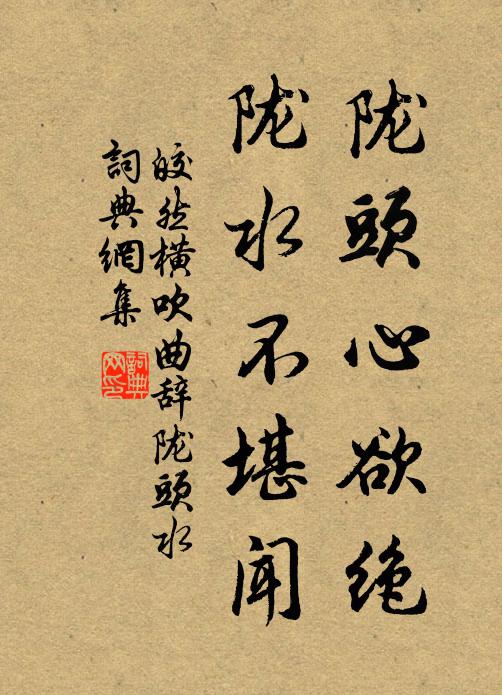 陇頭心欲绝
陇水不堪闻
皎然横吹曲辞陇頭水
詞典網集
詞典网印